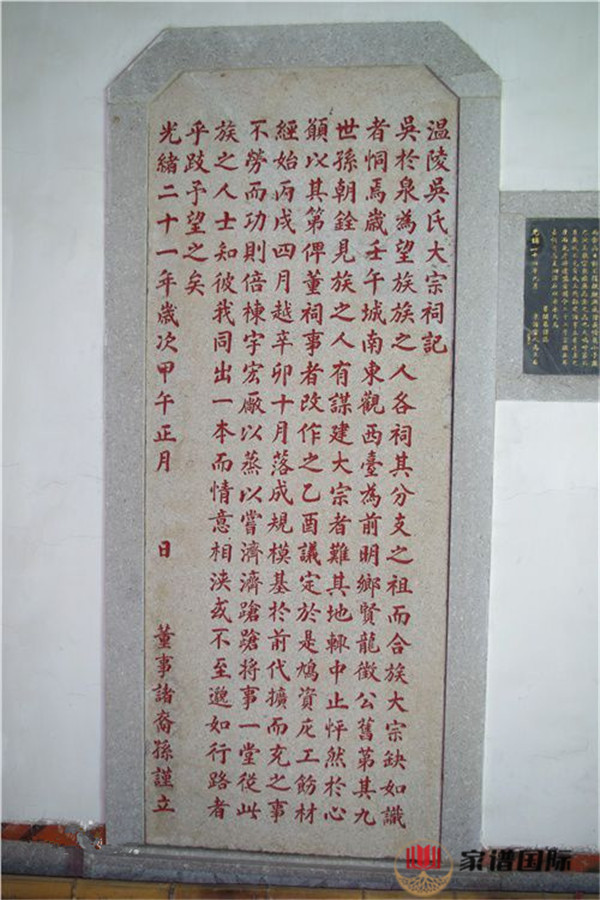 温陵吳氏大宗祠記
吳於泉為望族族之人各祠其分支之祖而合族大宗缺如識
者恫焉歲壬午城南東觀西臺為前明鄉賢龍徵公舊第其九
世孫朝銓見族之人有謀建大宗者難其地輒中止怦然於心
願以其第俾董祠事者改作之乙酉議定於是鳩資庀工飭材
經始丙戌四月越辛卯十月落成規模基於前代擴而充之事
不勞而功則倍棟宇宏厰以蒸以嘗濟濟蹌蹌將事一堂從此
族之人士知彼我同出一本而情意相浹或不至邈如行路者
乎跂予望之矣
光緒二十一年歲次甲午正月 日 董事諸裔孫謹立
家谱国际